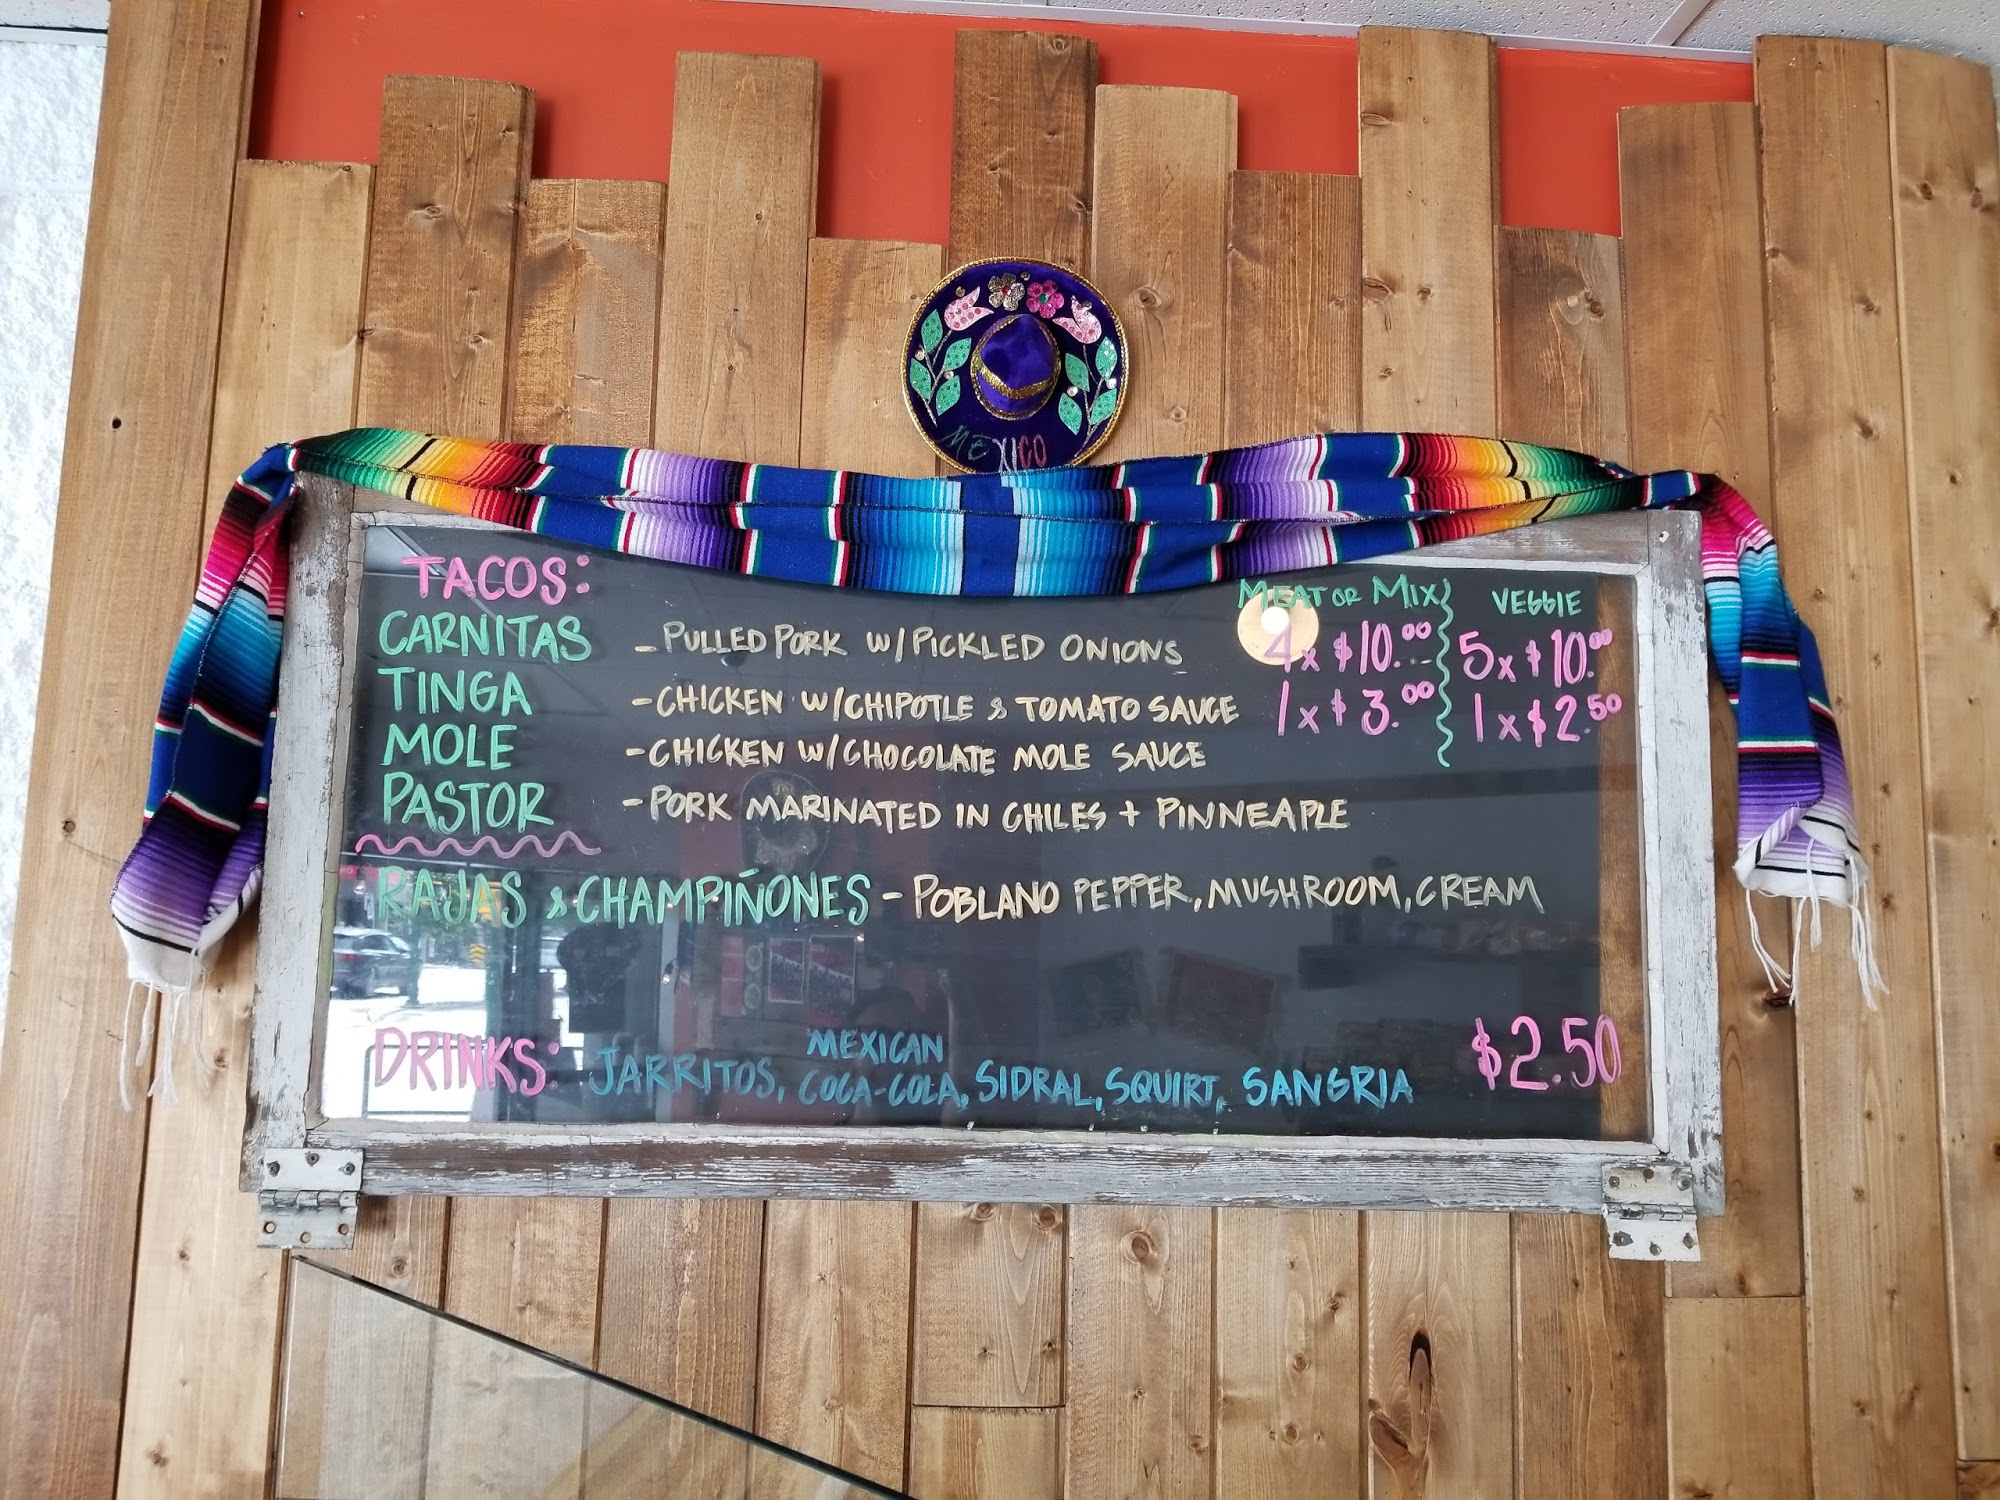 MēXICO
TACOS:
MEAT OR MIX
VEGGIE
CARNITAS - PULLED PORK W/PICKLED ONIONS
4 x $10.00
5 x $10.00
TINGA - CHICKEN W/CHIPOTLE & TOMATO SAUCE
1 x $3.00
1 x $2.50
MOLE - CHICKEN W/CHOCOLATE MOLE SAUCE
PASTOR - PORK MARINATED IN CHILES + PINNEAPLE
RAJAS & CHAMPIÑONES - POBLANO PEPPER, MUSHROOM, CREAM
DRINKS: JARRITOS, MEXICAN COCA-COLA, SIDRAL, SQUIRT, SANGRIA $2.50